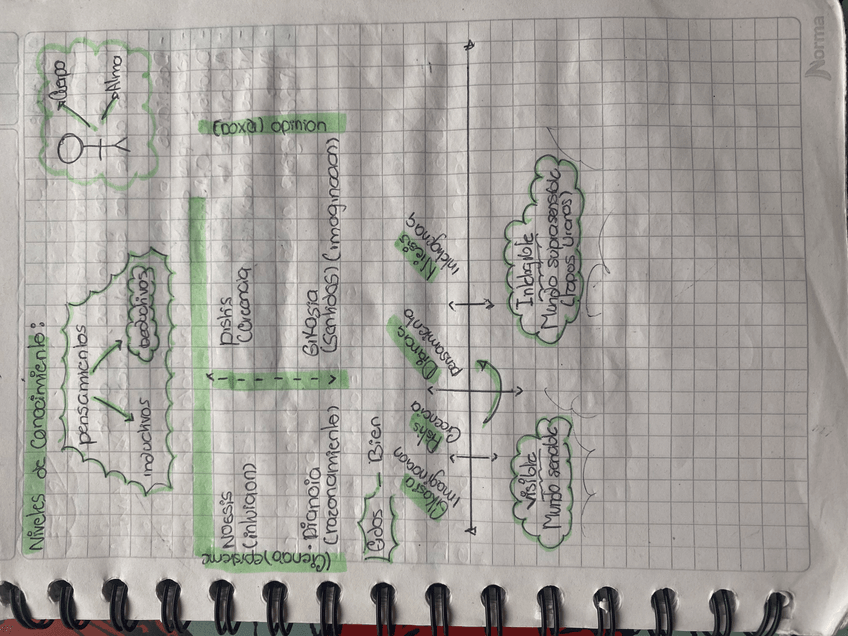 Niveles de Conocimiento:
pensamientos
inductivos
deductivos
Cuerpo
Alma
(Ciencia) episteme
Noesis
(intuicion)
Dianoia
(razonamiento)
pistis
Creencia
Eikasia
(Sentidos) (imaginacion)
(Doxa) opinion
Eidos - Bien
Imaginacion
Pistis
Creencia
Dianoia
pensamiento
Inteligible
Mundo suprasensible
(Topos Uranos)
Visible
Mundo sensible
Norma